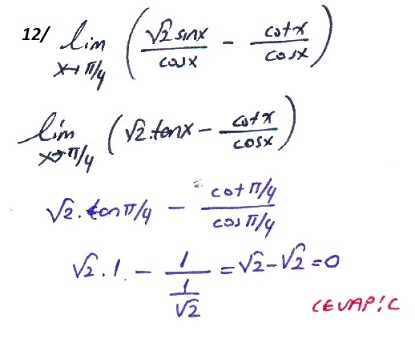 12/ lim x→π/4 (√2 sinx/cosx - cotx/cosx)
lim x→π/4 (√2.tanx - cotx/cosx)
√2.tanπ/4 - cotπ/4/cosπ/4
√2.1 - 1/(1/√2) = √2-√2=0
CEVAP:C